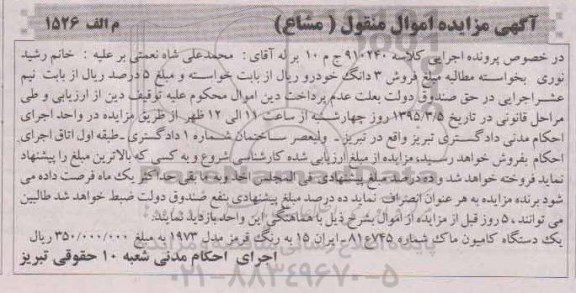 آگهی مزایده اموال منقول ( مشاع ) م الف ۱۵۲۶
در خصوص پرونده اجرایی کلاسه ۹۱۰۲۴۰ ج م ۱۰ بر له آقای : محمدعلی شاه نعمتی بر علیه : خانم رشید
نوری بخواسته مطالبه مبلغ فروش ۳ دانگ خودرو ریال از بابت خواسته و مبلغ ۵ درصد ریال از بابت نیم
عشر اجرایی در حق صندوق دولت بعلت عدم پرداخت دین اموال محکوم علیه توقیف دین از ارزیابی و طی
مراحل قانونی در تاریخ ۱۳۹۵/۳/۵ روز چهارشنبه از ساعت ۱۱ الی ۱۲ ظهر از طریق مزایده در واحد اجرای
احکام مدنی دادگستری تبریز واقع در تبریز - ولیعصر ساختمان شماره ۱ دادگستری - طبقه اول اتاق اجرای
احکام بفروش خواهد رسید. مزایده از مبلغ ارزیابی شده کارشناسی شروع و به کسی که بالاترین مبلغ را پیشنهاد
نماید فروخته خواهد شد و ده درصد مبلغ پیشنهادی فی المجلس اخذ و به مابقی حداکثر یک ماه فرصت داده می
شود برنده مزایده به هر عنوان انصراف نماید ده درصد مبلغ پیشنهادی بنفع صندوق دولت ضبط خواهد شد طالبین
می توانند ، ۵ روز قبل از مزایده از اموال بشرح ذیل با هماهنگی این واحد بازدید نمایند.
یک دستگاه کامیون ماک شماره ۷۴۵ع۸۱-ایران ۱۵ به رنگ قرمز مدل ۱۹۷۳ به مبلغ ۳۵۰/۰۰۰/۰۰۰ ریال
اجرای احکام مدنی شعبه ۱۰ حقوقی تبریز
۰۲۱-۸۸۳۴۹۶۷۰-۵